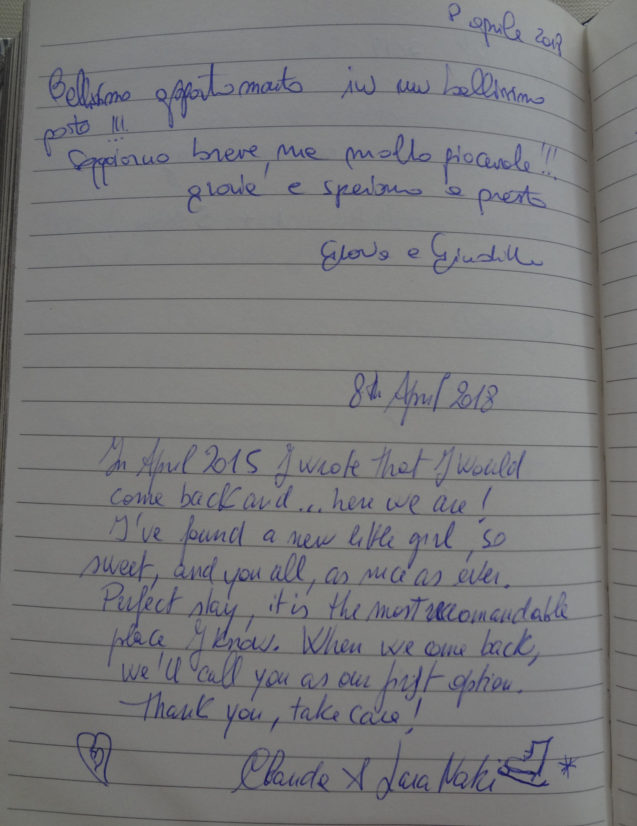 8 aprile 2018
Bellissimo appartamento in un bellissimo
posto !!!
Soggiorno breve, ma molto piacevole!!!
grazie e speriamo a presto
Gloria e Giuditta
8th April 2018
In April 2015 I wrote that I would
come back and... here we are!
I've found a new little girl, so
sweet, and you all, as nice as ever.
Perfect stay, it is the most recomandable
place I know. When we come back,
we'll call you as our first option.
Thank you, take care!
Claudia & Lara